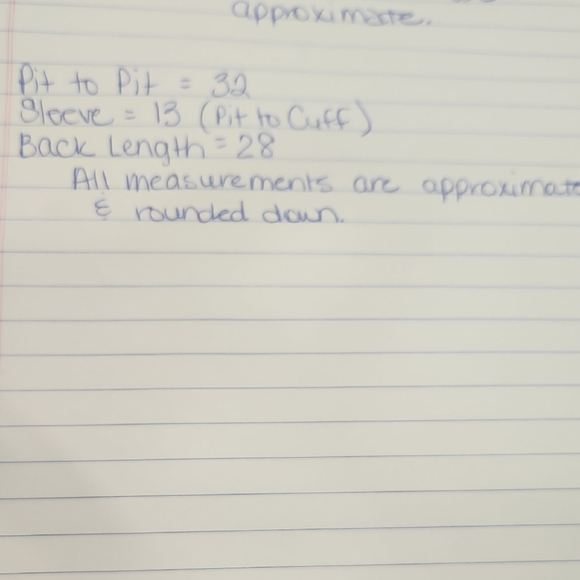 approximate.
Pit to Pit = 32
Sleeve = 13 (Pit to Cuff)
Back Length = 28
All measurements are approximate
& rounded down.